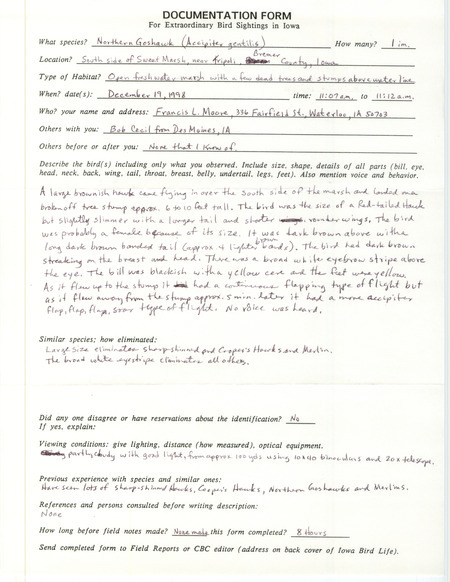 DOCUMENTATION FORM
For Extraordinary Bird Sightings in Iowa
What species? Northern Goshawk (Accipiter gentilis) How many? 1 im.
Location? South side of Sweet Marsh, near Tripoli, Bremer County, Iowa
Type of Habitat? Open freshwater marsh with a few dead trees and stumps above water line
When? date(s): December 19, 1998 time: 11:07 a.m. to 11:12 a.m.
Who? your name and address: Francis L. Moore, 336 Fairfield St., Waterloo, IA 50703
Others with you: Bob Cecil from Des Moines, IA
Others before or after you: None that I know of
Describe the bird(s) including only what you observed. Include size, shape, details of all parts (bill, eye,
head, neck, back, wing, tail, throat, breast, belly, undertail, legs, feet). Also mention voice and behavior.
A large brownish hawk came flying in over the south side of the marsh and landed on a
broken off tree stump approx. 6 to 10 feet tall. The bird was the size of a Red-tailed Hawk
but slightly slimmer with a longer tail and shorter rounder wings. The bird
was probably a female because of its size. It was dark brown above with a
long dark brown banded tail (approx 4 lighter brown bands). The bird had dark brown
streaking on the breast and head. There was a broad white eyebrow stripe above
the eye. The bill was blackish with a yellow cere and the feet were yellow.
As it flew up to the stump it had a continuous flapping type of flight but
as it flew away from the stump approx. 5 min. later it had a more accipiter
flap, flap, flap, soar type of flight. No voice was heard.
Similar species; how eliminated:
Large size eliminates sharp-shinned and Cooper's Hawks and Merlin.
The broad white eyestripe eliminates all others.
Did any one disagree or have reservations about the identification? No
If yes, explain:
Viewing conditions: give lighting, distance (how measured), optical equipment.
partly cloudy with good light, from approx. 100 yds using 10x40 binoculars and 20x telescope.
Previous experience with species and similar ones:
Have seen lots of sharp-shinned Hawks, Cooper's Hawks, Northern Goshawks and Merlins.
References and persons consulted before writing description:
None
How long before field notes made? None made this form completed? 8 hours
Send completed form to Field Reports or CBC editor (address on back cover of Iowa Bird Life).